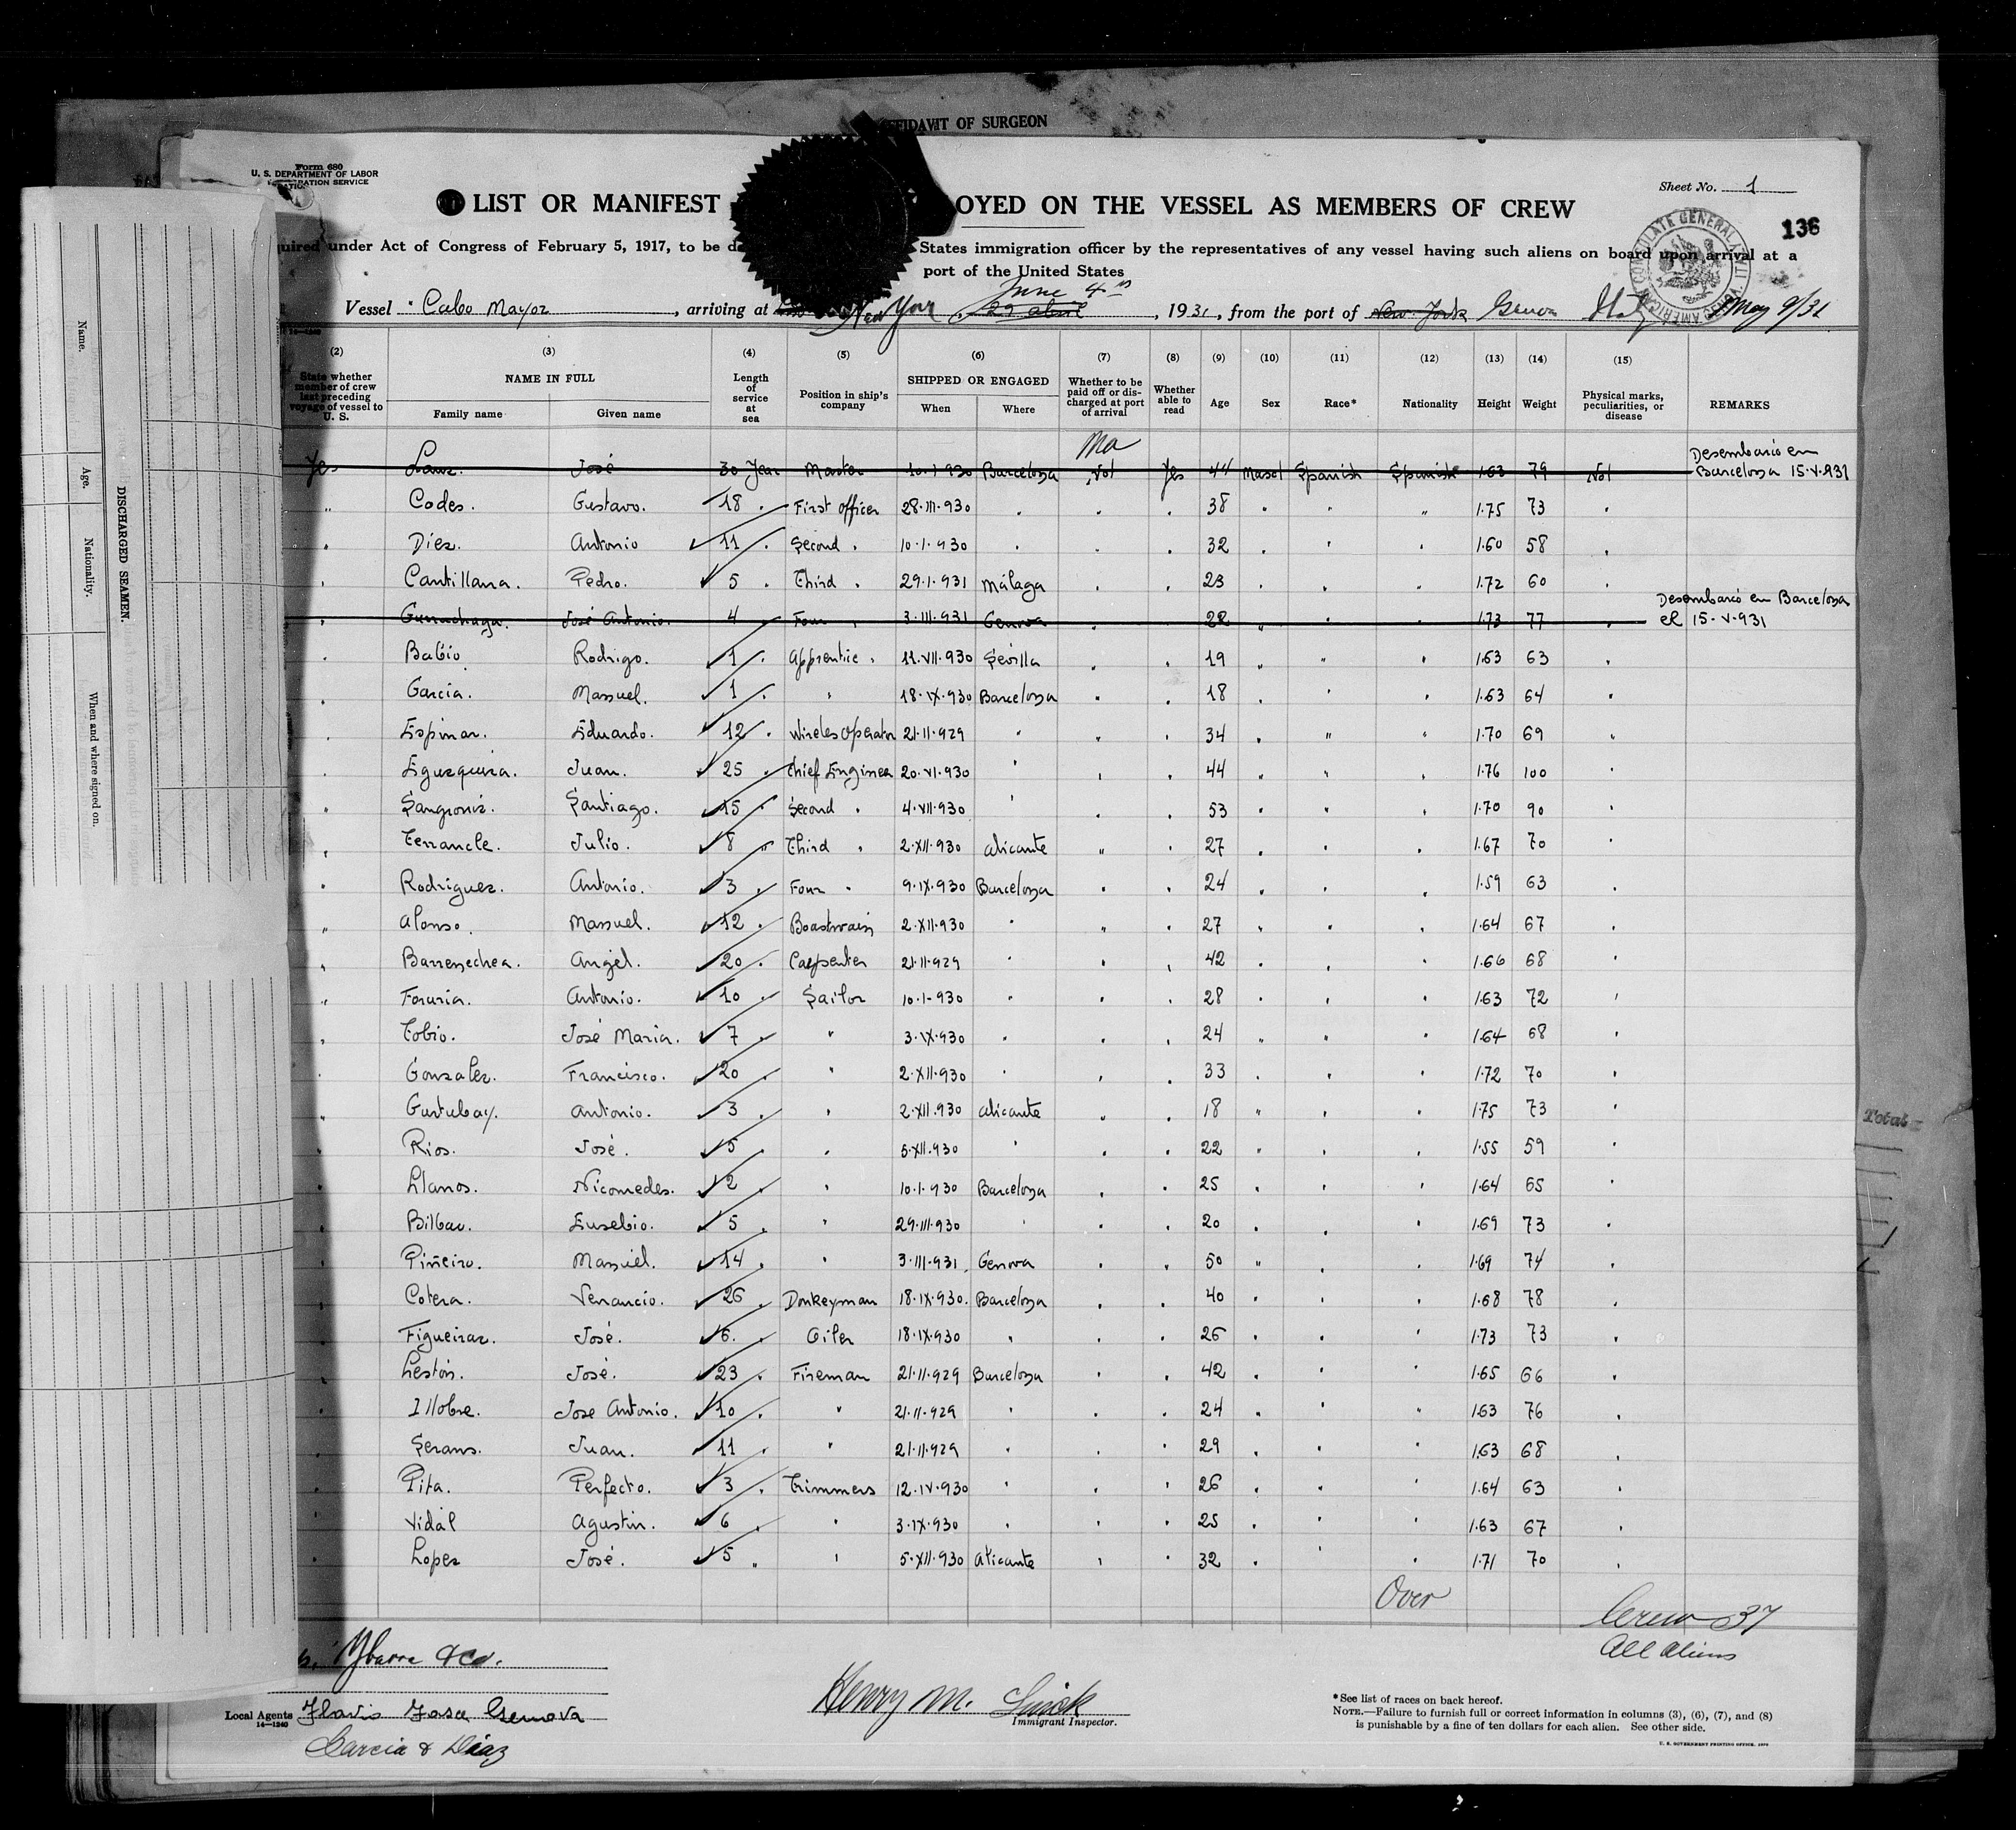 AFFIDAVIT OF SURGEON
Form 680
U. S. DEPARTMENT OF LABOR
IMMIGRATION SERVICE
Sheet No. 1
LIST OR MANIFEST OYED ON THE VESSEL AS MEMBERS OF CREW
136
quired under Act of Congress of February 5, 1917, to be de States immigration officer by the representatives of any vessel having such aliens on board upon arrival at a
port of the United States
AMERICAN CONSULATE GENERAL
June 4th
Vessel "Cabo Mayor, arriving at New York, 29 abril, 1931, from the port of New York Genoa Italy May 9/31
(2) (3) (4) (5) (6) (7) (8) (9) (10) (11) (12) (13) (14) (15)
State whether member of crew last preceding voyage of vessel to U. S. NAME IN FULL Family name Given name Length of service at sea Position in ship's company SHIPPED OR ENGAGED When Where Whether to be paid off or discharged at port of arrival Whether able to read Age Sex Race* Nationality Height Weight Physical marks, peculiarities, or disease REMARKS
Yes José 30 Year Master 10·1·930 Barcelona Not Yes 44 Spanish Spanish 1·63 79 Not Desembarcó en Barcelona 15·V·931
" Codes. Gustavo. 18 . First officer 28·III·930 . . . 38 . . " 1·75 73 .
. Diez. Antonio 11 . Second . 10·1·930 . . . 32 . . . 1·60 58 .
. Cantillana. Pedro. 5 . Third . 29·1·931 Málaga . . 23 . . . 1·72 60 .
. Gurruchaga. José Antonio. 4 Four . 3·III·931 Genova . 22 . . . 1·73 77 . Desembarcó en Barcelona el 15·V·931
. Babío Rodrigo. 1 . apprentice . 11·VII·930 Sevilla . . 19 . " . 1·63 63 .
. Garcia. Manuel. 1 . . 18·IX·930 Barcelona . . 18 . . . 1·63 64 .
. Espinar. Eduardo. 12 . Wireles Operator 21·11·929 . . . 34 . " . 1·70 69 .
. Eguzquiza. Juan. 25 . Chief Enginea 20·VI·930 . . . 44 . . . 1·76 100 .
" Sangroniz. Santiago. 15 . Second . 4·VII·930 . . . 53 . . . 1·70 90 .
. Julio. 8 " Third . 2·XII·930 alicante " . 27 . . . 1·67 70 .
. Rodriguez. Antonio. 3 . Four . 9·IX·930 Barcelona . . 24 . . . 1·59 63 .
" Alonso. Manuel. 12 . Boastwain 2·XII·930 . . . 27 . . . 1·64 67 .
. Barrenechea. Angel. 20 . Carpenter 21·11·929 . . . 42 . . . 1·66 68 .
" Antonio. 10 . Sailor 10·1·930 . . . 28 . . . 1·63 72 .
. Tobio. José Maria. 7 . " 3·IX·930 . . . 24 . " . 1·64 68 .
. Gonzalez. Francisco. 20 . " 2·XII·930 . . . 33 . . . 1·72 70 .
. Gurtubay. Antonio. 3 . . 2·XII·930 alicante . . 18 . . . 1·75 73 .
. Rios. José. 5 . . 5·XII·930 . . . 22 . . . 1·55 59 .
. Llanos. Nicomedes. 2 . . 10·1·930 Barcelona . . 25 . . . 1·64 65 .
. Bilbao. Eusebio. 5 . . 29·III·930 . . . 20 . . . 1·69 73 .
. Piñeiro. Manuel. 14 . . 3·III·931. Genova . . 50 . . . 1·69 74 .
. Cotera. Venancio. 26 . Donkeyman 18·IX·930. Barcelona . . 40 . . . 1·68 78 .
. Figueiraz. José. 6. . Oiler 18·IX·930 . . . 26 . . . 1·73 73 .
. Lestón. José. 23 . Fireman 21·11·929 Barcelona . . 42 . . . 1·65 66 .
. Illobre. Jose Antonio. 10 . " 21·11·929 . . . 24 . . . 1·63 76 .
. Serans. Juan. 11 . " 21·11·929 . . . 29 . . . 1·63 68 .
. Pita. Perfecto. 3 . Trimmers 12·IV·930 . . . 26 . . . 1·64 63 .
. Vidal Agustin. 6 . . 3·IX·930 . . . 25 . . . 1·63 67 .
. Lopez José. 5 " . 5·XII·930 Alicante . . 32 . . . 1·71 70 .
Over
Crew 37
All aliens
Ybarra & Co.
Local Agents Flavio Genova
14—1240
Garcia & Diaz
Henry M.
Immigrant Inspector.
*See list of races on back hereof.
NOTE.—Failure to furnish full or correct information in columns (3), (6), (7), and (8)
is punishable by a fine of ten dollars for each alien. See other side.
U. S. GOVERNMENT PRINTING OFFICE
Total
DISCHARGED SEAMEN.
Name. Age. Nationality. When and where signed on.